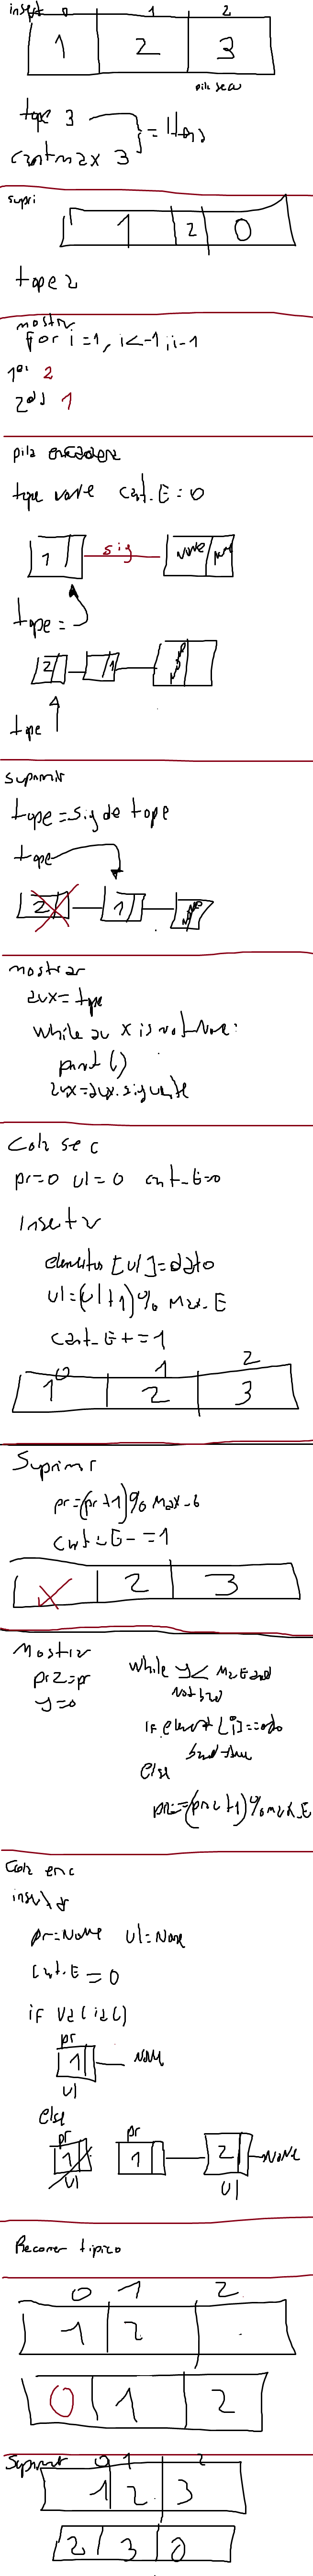 insert 0 1 2
1 2 3
pila sec
tope 3
cantmax 3 } = items
supri
1 2 0
tope 2
mostrar
for i=1, i<-1, i-1
1er 2
2do 1
pila encadena
tope none cant_E=0
1 sig none
tope =
2 1
tope
suprimir
tope = sig de tope
tope
2 1
mostrar
aux = tope
while aux is not None:
print ()
aux = aux.siguiente
Cola sec
pr=0 ul=0 cant_E=0
Insertar
elementos [ul]=dato
ul=(ul+1)% Max_E
cant_E+=1
0 1 2
1 2 3
Suprimir
pr=(pr+1)% Max_E
cant_E-=1
2 3
Mostrar
pr2=pr
y=0
while y<
not band
if element [i]==dato
band=true
else
pr2=(pr2+1)%max_E
Cola enc
insertar
pr=None ul=None
cant_E=0
if vacia()
pr
1 None
ul
else
pr pr
1 1 2 None
ul ul
Recorrer tipico
0 1 2
1 2
0 1 2
Suprimir 0 1 2
1 2 3
2 3 0